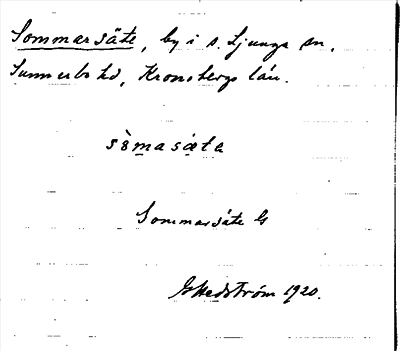 Sommarsäte, by i s. Ljunga sn,
Sunnerbo hd, Kronobergs län.
sòmasæta
Sommarsäte G
G Hedström 1920.